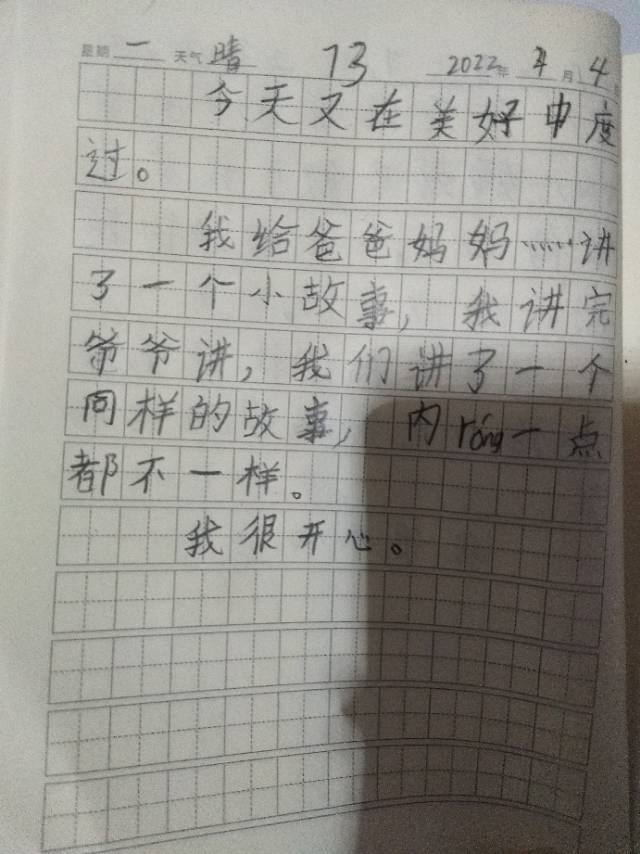 星期一 天气晴 13 2022年 月4
今天又在美好中度
过。
我给爸爸妈妈……讲
了一个小故事，我讲完
爷爷讲，我们讲了一个
同样的故事，内róng一点
都不一样。
我很开心。